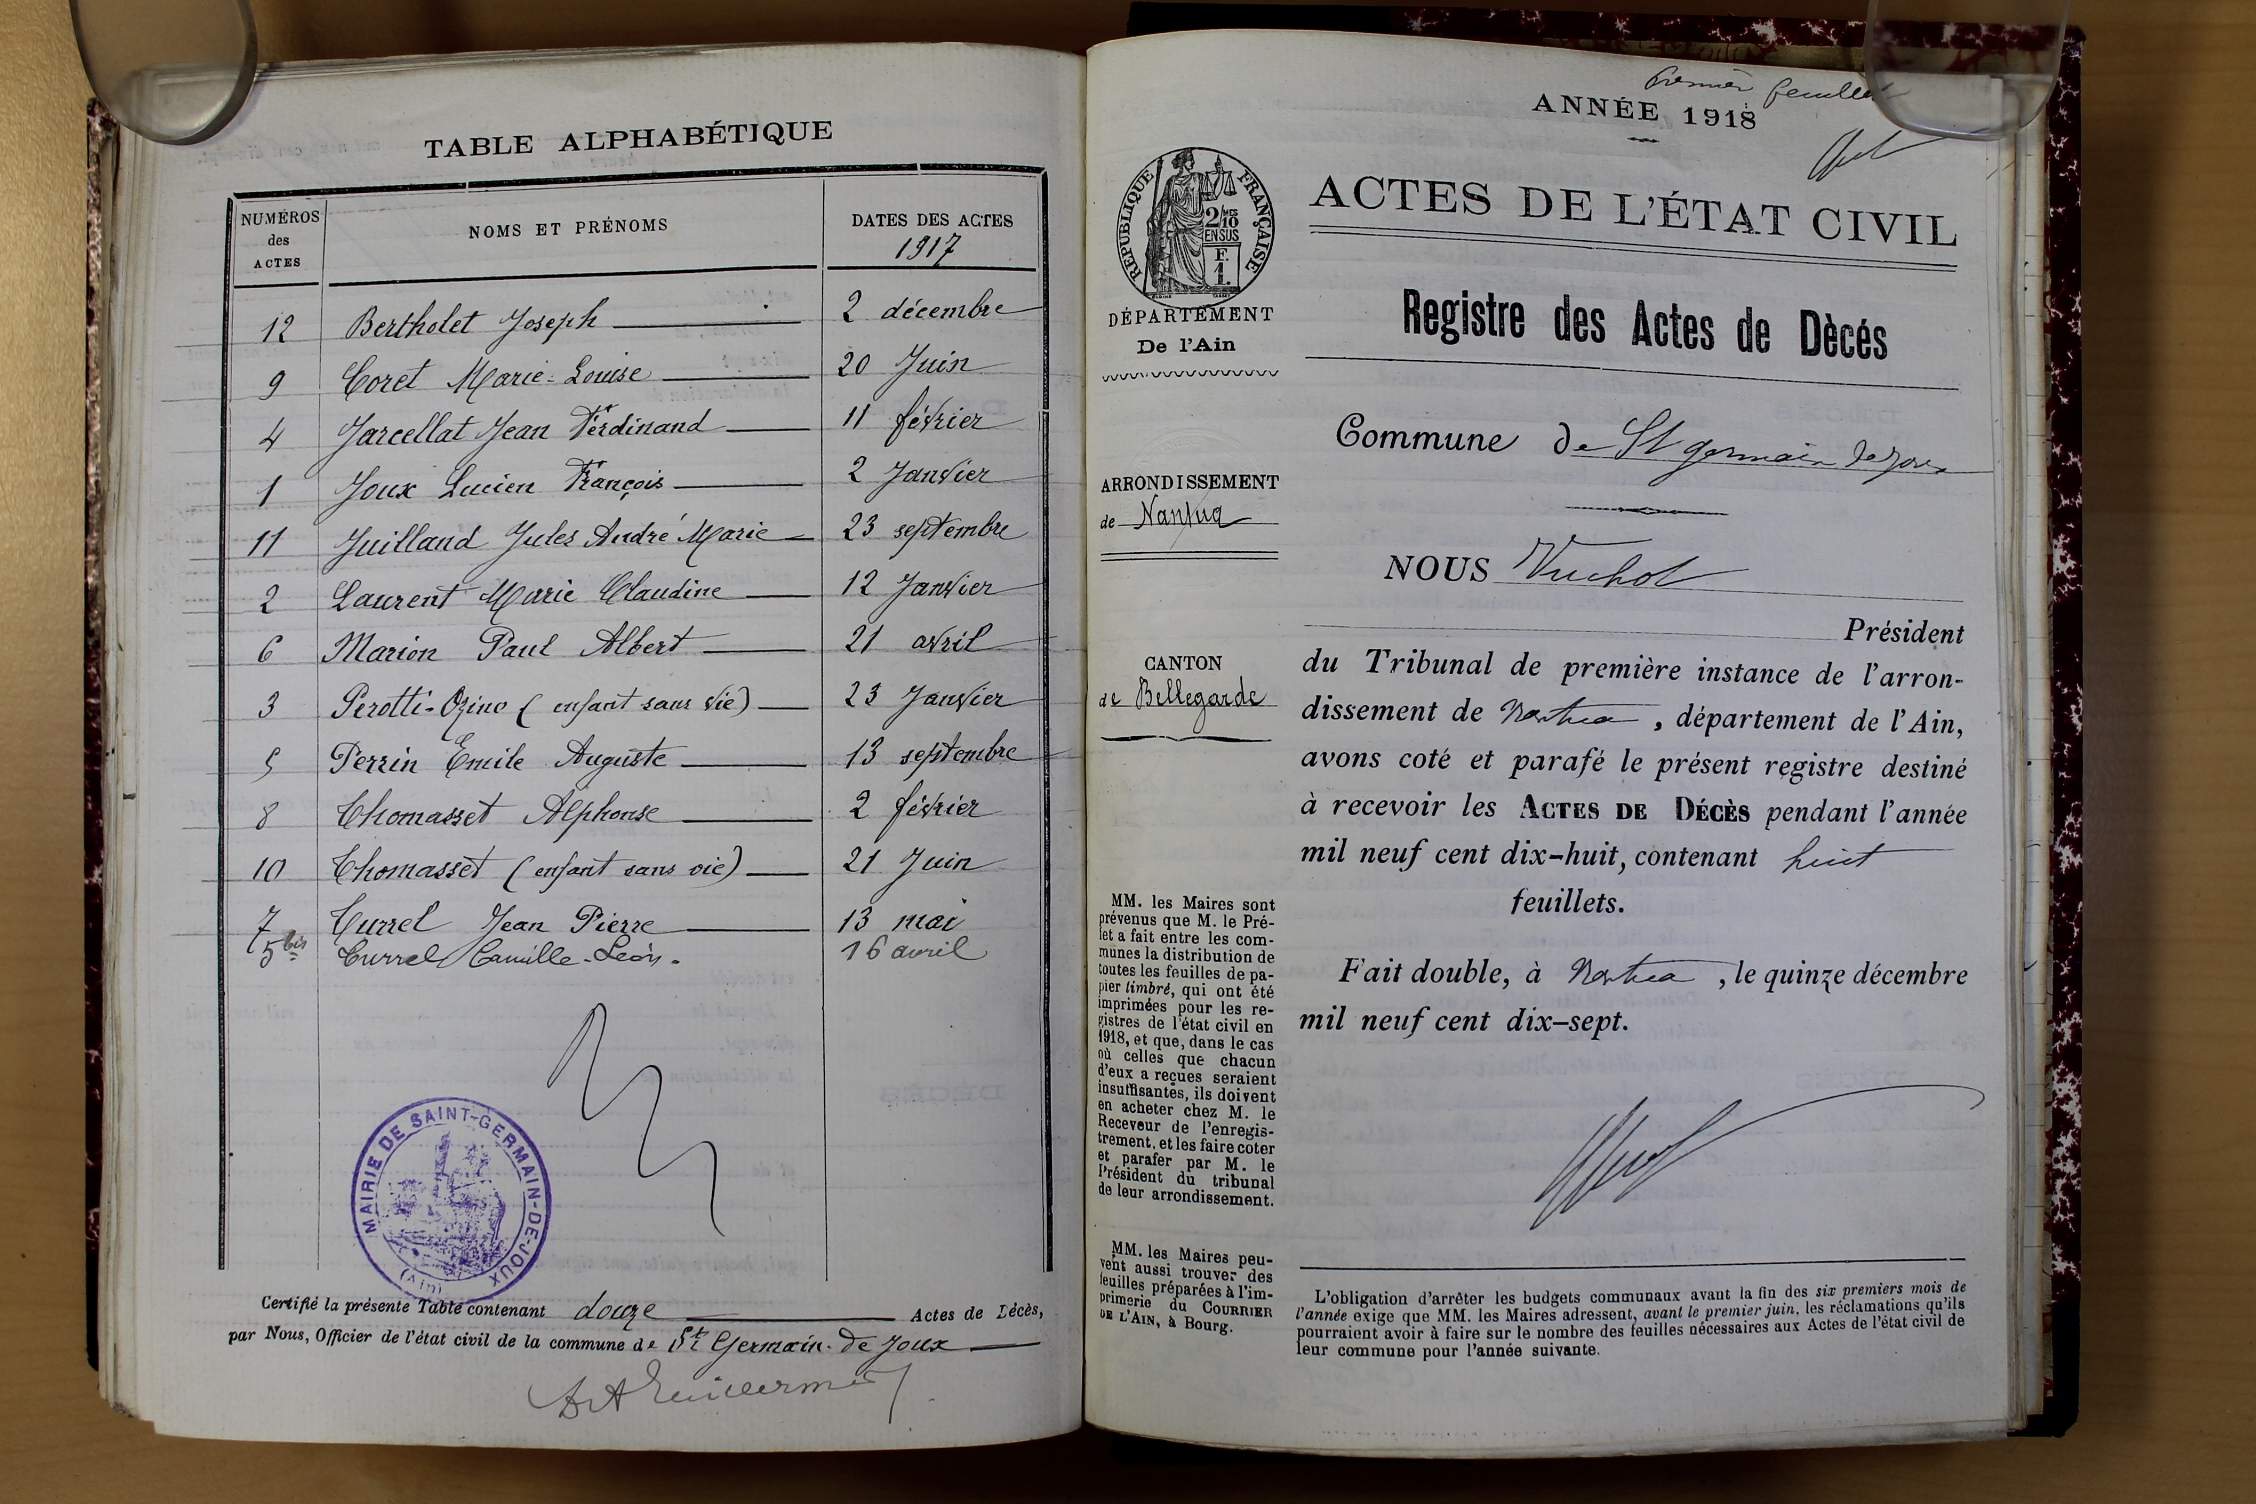 TABLE ALPHABÉTIQUE
NUMÉROS des ACTES NOMS ET PRÉNOMS DATES DES ACTES 1917
12 Bertholet Joseph 2 décembre
9 Coret Marie-Louise 20 Juin
4 Jarcellat Jean Ferdinand 11 février
1 Joux Lucien François 2 Janvier
11 Juilland Jules André Marie 23 septembre
2 Laurent Marie Claudine 12 Janvier
6 Marion Paul Albert 21 avril
3 Perotti-Ozino (enfant sans vie) 23 Janvier
5 Perrin Emile Auguste 13 septembre
8 Thomasset Alphonse 2 février
10 Thomasset (enfant sans vie) 21 Juin
7 Turrel Jean Pierre 13 mai
5bis Turrel Camille-Léon. 16 avril
MAIRIE DE SAINT-GERMAIN-DE-JOUX
(Ain)
Certifié la présente Table contenant douze Actes de Décès,
par Nous, Officier de l'état civil de la commune de St Germain-de Joux
Premier feuillet
ANNÉE 1918
RÉPUBLIQUE FRANÇAISE
2/10 MES
EN SUS
F.
1.
DÉPARTEMENT
De l'Ain
ARRONDISSEMENT
de Nantua
CANTON
de Bellegarde
MM. les Maires sont
prévenus que M. le Pré-
fet a fait entre les com-
munes la distribution de
toutes les feuilles de pa-
pier timbré, qui ont été
imprimées pour les re-
gistres de l'état civil en
1918, et que, dans le cas
où celles que chacun
d'eux a reçues seraient
insuffisantes, ils doivent
en acheter chez M. le
Receveur de l'enregis-
trement, et les faire coter
et parafer par M. le
Président du tribunal
de leur arrondissement.
MM. les Maires peu-
vent aussi trouver des
feuilles préparées à l'im-
primerie du COURRIER
DE L'AIN, à Bourg.
ACTES DE L'ÉTAT CIVIL
Registre des Actes de Dècés
Commune de St germain de joux
NOUS Vuchot
Président
du Tribunal de première instance de l'arron-
dissement de Nantua, département de l'Ain,
avons coté et parafé le présent registre destiné
à recevoir les ACTES DE DÉCÈS pendant l'année
mil neuf cent dix-huit, contenant huit
feuillets.
Fait double, à Nantua, le quinze décembre
mil neuf cent dix-sept.
L'obligation d'arrêter les budgets communaux avant la fin des six premiers mois de
l'année exige que MM. les Maires adressent, avant le premier juin, les réclamations qu'ils
pourraient avoir à faire sur le nombre des feuilles nécessaires aux Actes de l'état civil de
leur commune pour l'année suivante.